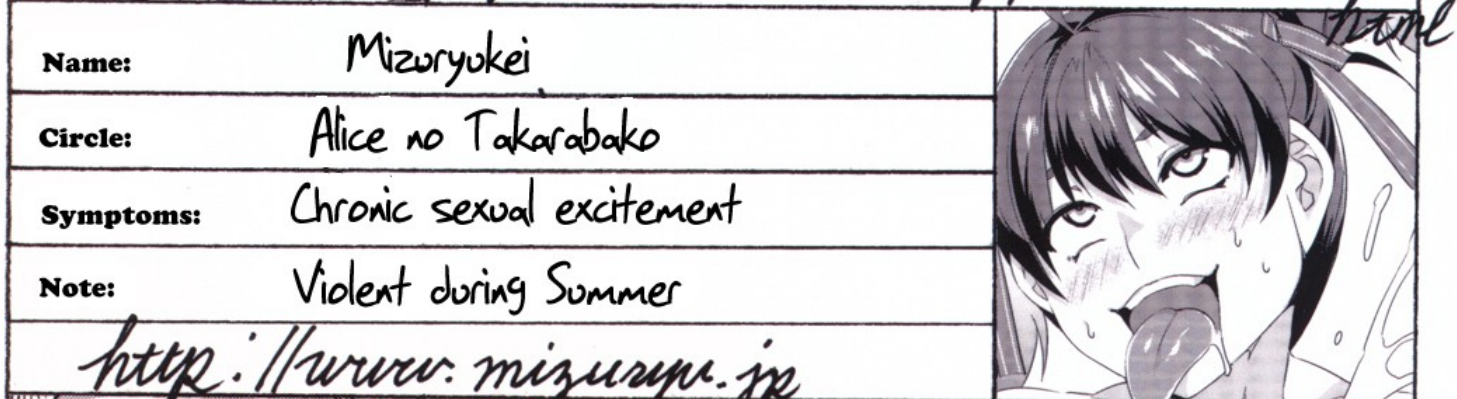 html
Name: Mizuryukei
Circle: Alice no Takarabako
Symptoms: Chronic sexual excitement
Note: Violent during Summer
http://www.mizuryu.jp